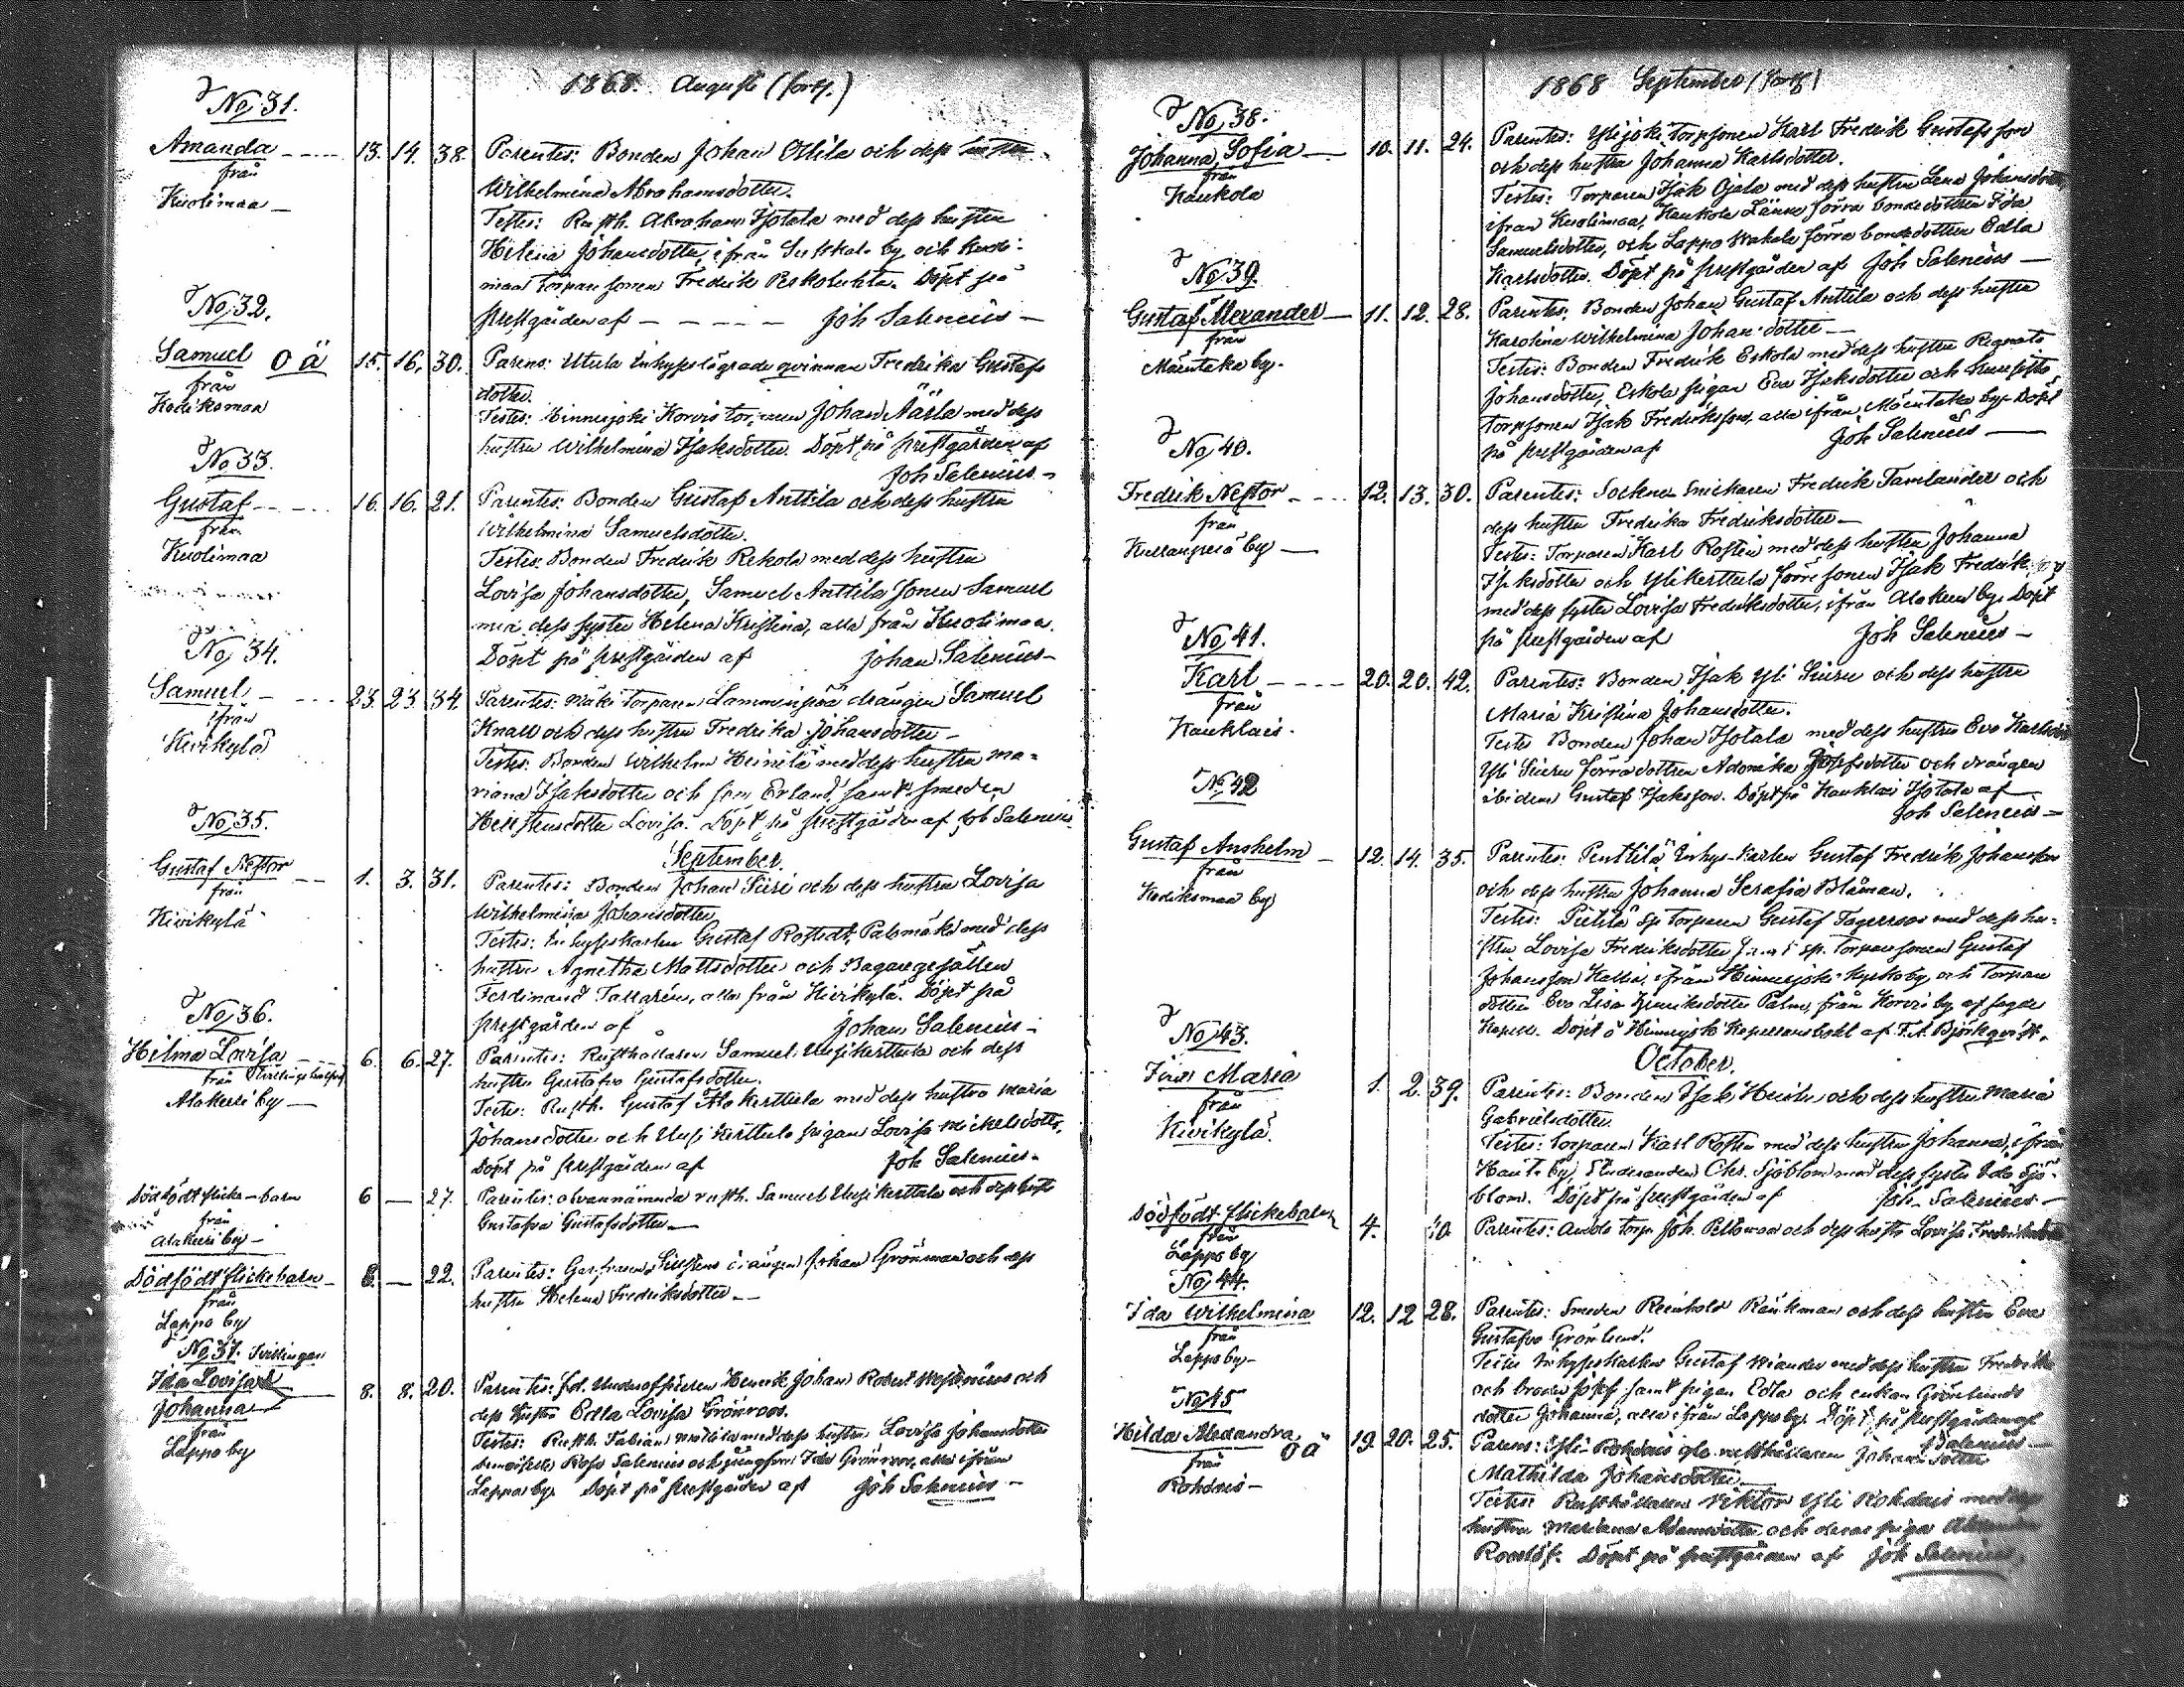 1868. Augusti (forts.)
No 31.
Amanda 13. 14. 38. Parentes: Bonden Johan Ollila och dess hustru
från Wilhelmina Abrahamsdotter.
Kuolimaa Testes: Rusth. Abraham Isotalo med dess hustru
Helena Johansdotter, ifrån by och Kuoli-
maa Torpare sonen Fredrik Döpt på
prestgården af Joh Salenius
No 32.
Samuel O Ä 15. 16. 30. Parens: Utula Inhyses lägrade qvinnan Fredrika Gustafs
från dotter.
Kodiksmaa Testes: Hinnerjoki Korvis torparen Johan Äärlä med dess
hustru Wilhelmina Isaksdotter. Döpt på prestgården af
Joh Salenius
No 33.
Gustaf 16. 16. 21. Parentes: Bonden Gustaf Anttila och dess hustru
från Wilhelmina Samuelsdotter.
Kuolimaa Testes: Bonden Fredrik Rekola med dess hustru
Lovisa Johansdotter, Samuel Anttila sonen Samuel
med dess syster Helena Kristina, alla från Kuolimaa.
Döpt på prestgården af Johan Salenius
No 34.
Samuel 23. 23. 34. Parentes: Mäki torparen Lamminpää drängen Samuel
ifrån Knall och dess hustru Fredrika Johansdotter
Kivikylä Testes: Bonden Wilhelm Heinilä med dess hustru Ma-
riana Isaksdotter och son Erland, samt smeden
Lovisa. Döpt på prestgården af Joh Salenius
No 35. September.
Gustaf Nestor 1. 3. 31. Parentes: Bonden Johan Siiri och dess hustru Lovisa
från Wilhelmina Johansdotter
Kivikylä Testes: Inhyseskarlen Gustaf Rostedt, Palomäki med dess
hustru Agnetha Mattsdotter och Bagaregesällen
Ferdinand Tallgrén, alla från Kivikylä. Döpt på
prestgården af Johan Salenius
No 36.
Hilma Lovisa 6. 6. 27. Parentes: Rusthollaren Samuel Uusikerttula och dess
från hustru Gustafva Gustafsdotter.
Alakerri by Testes: Rusth. Gustaf Ala Kerttula med dess hustru Maria
Johansdotter och Uusi Kerttula pigan Lovisa Mickelsdotter.
Döpt på prestgården af Joh Salenius
Dödfödt flicke-barn 6 — 27. Parentes: ofvannämnda rusth. Samuel Uusikerttula och dess hustru
från Gustafva Gustafsdotter
Alakerri by
Dödfödt flickebarn 8. — 22. Parentes: drängen Johan Grönman och dess
från hustru Helena Fredriksdotter
Lappo by
No 37. tvillingar
Ida Lovisa &
Johanna 8. 8. 20. Parentes: fd. Underofficeren Henrik Johan Robert och
från dess hustru Edla Lovisa Grönroos.
Lappo by Testes: Rusth. Fabian Mattila med dess hustru Lovisa Johansdotter
Rosa Salenius och jungfrun Ida Grönroos, alla ifrån
Lappo by. Döpt på prestgården af Joh Salenius
1868 September (forts)
No 38.
Johanna Sofia 10. 11. 24. Parentes: Ylijoki Torpsonen Karl Fredrik Gustafsson
från och dess hustru Johanna Karlsdotter.
Haukola Testes: Torparen Isak Ojala med dess hustru Lena Johansdotter
ifrån Kuolimaa, Haukola Länne förra bondedottren Ida
Samuelsdotter, och Lappo Wahala förra bondedottren Edla
Karlsdotter. Döpt på prestgården af Joh Salenius
No 39.
Gustaf Alexander 11. 12. 28. Parentes: Bonden Johan Gustaf Anttila och dess hustru
från Karolina Wilhelmina Johansdotter
Mäentaka by. Testes: Bonden Fredrik Eskola med dess hustru Regnata
Johansdotter, Eskola pigan Eva Isaksdotter och
torpsonen Isak Fredriksson, alla ifrån Mäentaka by. Döpt
på prestgården af Joh Salenius
No 40.
Fredrik Nestor 12. 13. 30. Parentes: Sockne Snickaren Fredrik Tamlander och
från dess hustru Fredrika Fredriksdotter
Kullanperä by Testes: Torparen Karl Rostén med dess hustru Johanna
Isaksdotter och Ylikerttula förre sonen Isak Fredriksson
med dess syster Lovisa Fredriksdotter, ifrån Alakerri by. Döpt
på prestgården af Joh Salenius
No 41.
Karl 20. 20. 42. Parentes: Bonden Isak Yli Siuru och dess hustru
från Maria Kristina Johansdotter.
Hauklais. Testes Bonden Johan Isotalo med dess hustru Eva Karlsdotter
Yli Siuru förra dottren Adamika Josefsdotter och drängen
ibidem Gustaf Isaksson. Döpt på Hauklais Isotalo af
Joh Salenius
No 42
Gustaf Anshelm 12. 14. 35. Parentes: Penttilä Inhys-Karlen Gustaf Fredrik Johansson
från och dess hustru Johanna Serafia Blåman.
Kodiksmaa by Testes: Pietilä sp torparen Gustaf Fagerroos med dess hu-
stru Lovisa Fredriksdotter samt sp. torparesonen Gustaf
Johansson Kallio, ifrån Hinnerjoki Kyrkoby och torpare
dotter Eva Lisa Henriksdotter Palm, från Korvis by af sagde
Kapell. Döpt å Hinnerjoki Kapellansbohl af F.A. Björkqvist.
No 43. October.
Maria 1. 2. 39. Parentes: Bonden Isak Heisko och dess hustru Maria
från Gabrielsdotter.
Kivikylä. Testes: Torparen Karl Rostén med dess hustru Johanna, ifrån
by, Studeranden Chr. Sjöblom med dess syster Ida Sjö-
blom. Döpt på prestgården af Joh. Salenius
Dödfödt flickebarn 4. 40. Parentes: torp. Joh. Peltoman och dess hustru Lovisa Fredriksdotter
från
Lappo by
No 44.
Ida Wilhelmina 12. 12 28. Parentes: Smeden Reinhold Ränkman och dess hustru Eva
från Gustafva Grönlund.
Lappo by Testes Inhyseskarlen Gustaf Wiander med dess hustru Fredrika
och broder Josef samt pigan Edla och enkan Grönlunds
dotter Johanna, alla ifrån Lappo by. Döpt på prestgården af
J Salenius
No 45
Hilda Alexandra O Ä 19. 20. 25. Parens: Yli-Rohdais fd. rusthållaren Johans dotter
från Mathilda Johansdotter
Rohdais Testes: Rusthållaren Viktor Yli Rohdais med dess
hustru Mariana Adamsdotter och deras piga
Rooslöf. Döpt på prestgården af Joh Salenius